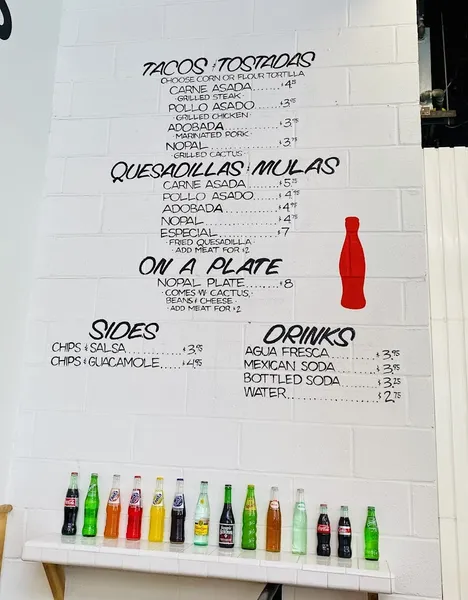 TACOS & TOSTADAS
CHOOSE CORN OR FLOUR TORTILLA
CARNE ASADA.......$4.25
·GRILLED STEAK·
POLLO ASADO.......$3.95
·GRILLED CHICKEN·
ADOBADA...........$3.75
·MARINATED PORK·
NOPAL.............$3.75
GRILLED CACTUS·
QUESADILLAS & MULAS
CARNE ASADA.......$5.25
POLLO ASADO.......$4.95
ADOBADA...........$4.95
NOPAL.............$4.75
ESPECIAL..........$7
·FRIED QUESADILLA·
·ADD MEAT FOR $2
ON A PLATE
NOPAL PLATE.......$8
·COMES W/ CACTUS,
BEANS & CHEESE·
·ADD MEAT FOR $2
SIDES
CHIPS & SALSA..........$3.95
CHIPS & GUACAMOLE....$4.95
DRINKS
AGUA FRESCA........$3.95
MEXICAN SODA.......$3.95
BOTTLED SODA.......$3.25
WATER..............$2.75